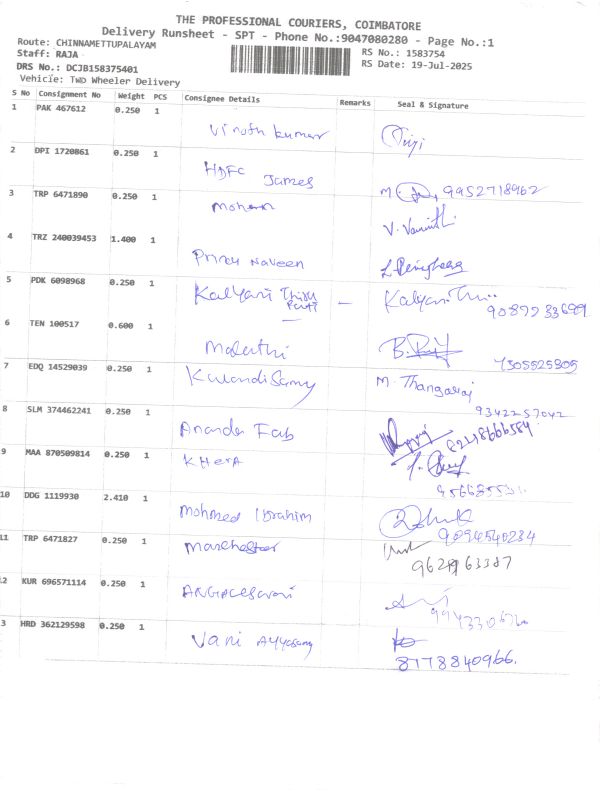 THE PROFESSIONAL COURIERS, COIMBATORE
Delivery Runsheet - SPT - Phone No.:9047080280 - Page No.:1
Route: CHINNAMETTUPALAYAM
Staff: RAJA
DRS No.: DCJB158375401
Vehicle: Two Wheeler Delivery
RS No.: 1583754
RS Date: 19-Jul-2025
S No Consignment No Weight PCS Consignee Details Remarks Seal & Signature
1 PAK 467612 0.250 1 Vinoth kumar
2 DPI 1720861 0.250 1 HDFC James M. 9952718962
3 TRP 6471890 0.250 1 Mohan V.
4 TRZ 240039453 1.400 1 Naveen
5 PDK 6098968 0.250 1 Kalyani — Kalyani
6 TEN 100517 0.600 1 Malathi B. 7305525805
7 EDQ 14529039 0.250 1 Kalandisamy M. Thangaraj
9342257042
8 SLM 374462241 0.250 1 Ananda Fab
9 MAA 870509814 0.250 1 KHerA
10 DDG 1119930 2.410 1 Mohmed Ibrahim
9094540234
11 TRP 6471827 0.250 1 Manchester
12 KUR 696571114 0.250 1
3 HRD 362129598 0.250 1 Vani Ayyasamy
8778840966.